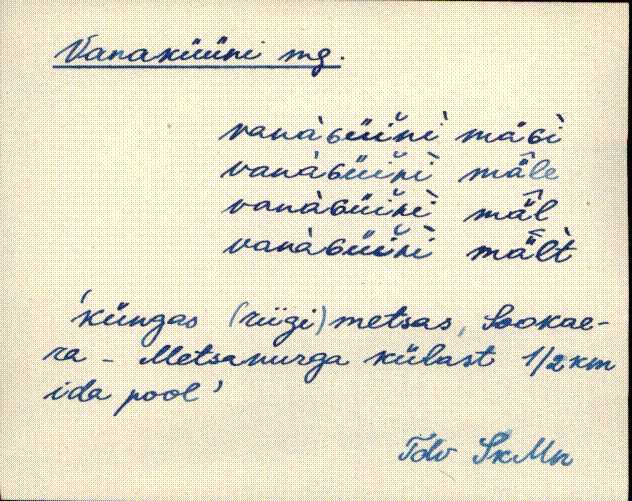 Vanaküüni mg.
vanàɢüünì̮ mäɢì̮
vanàɢüünì̮ mä̂le
vanàɢüünì̮ mä̂l
vanàɢüünì̮ mä̂lt
'küngas (riigi) metsas, Sookae-
ra - Metsanurga külast 1/2 km
ida pool'
Tdv SkMn